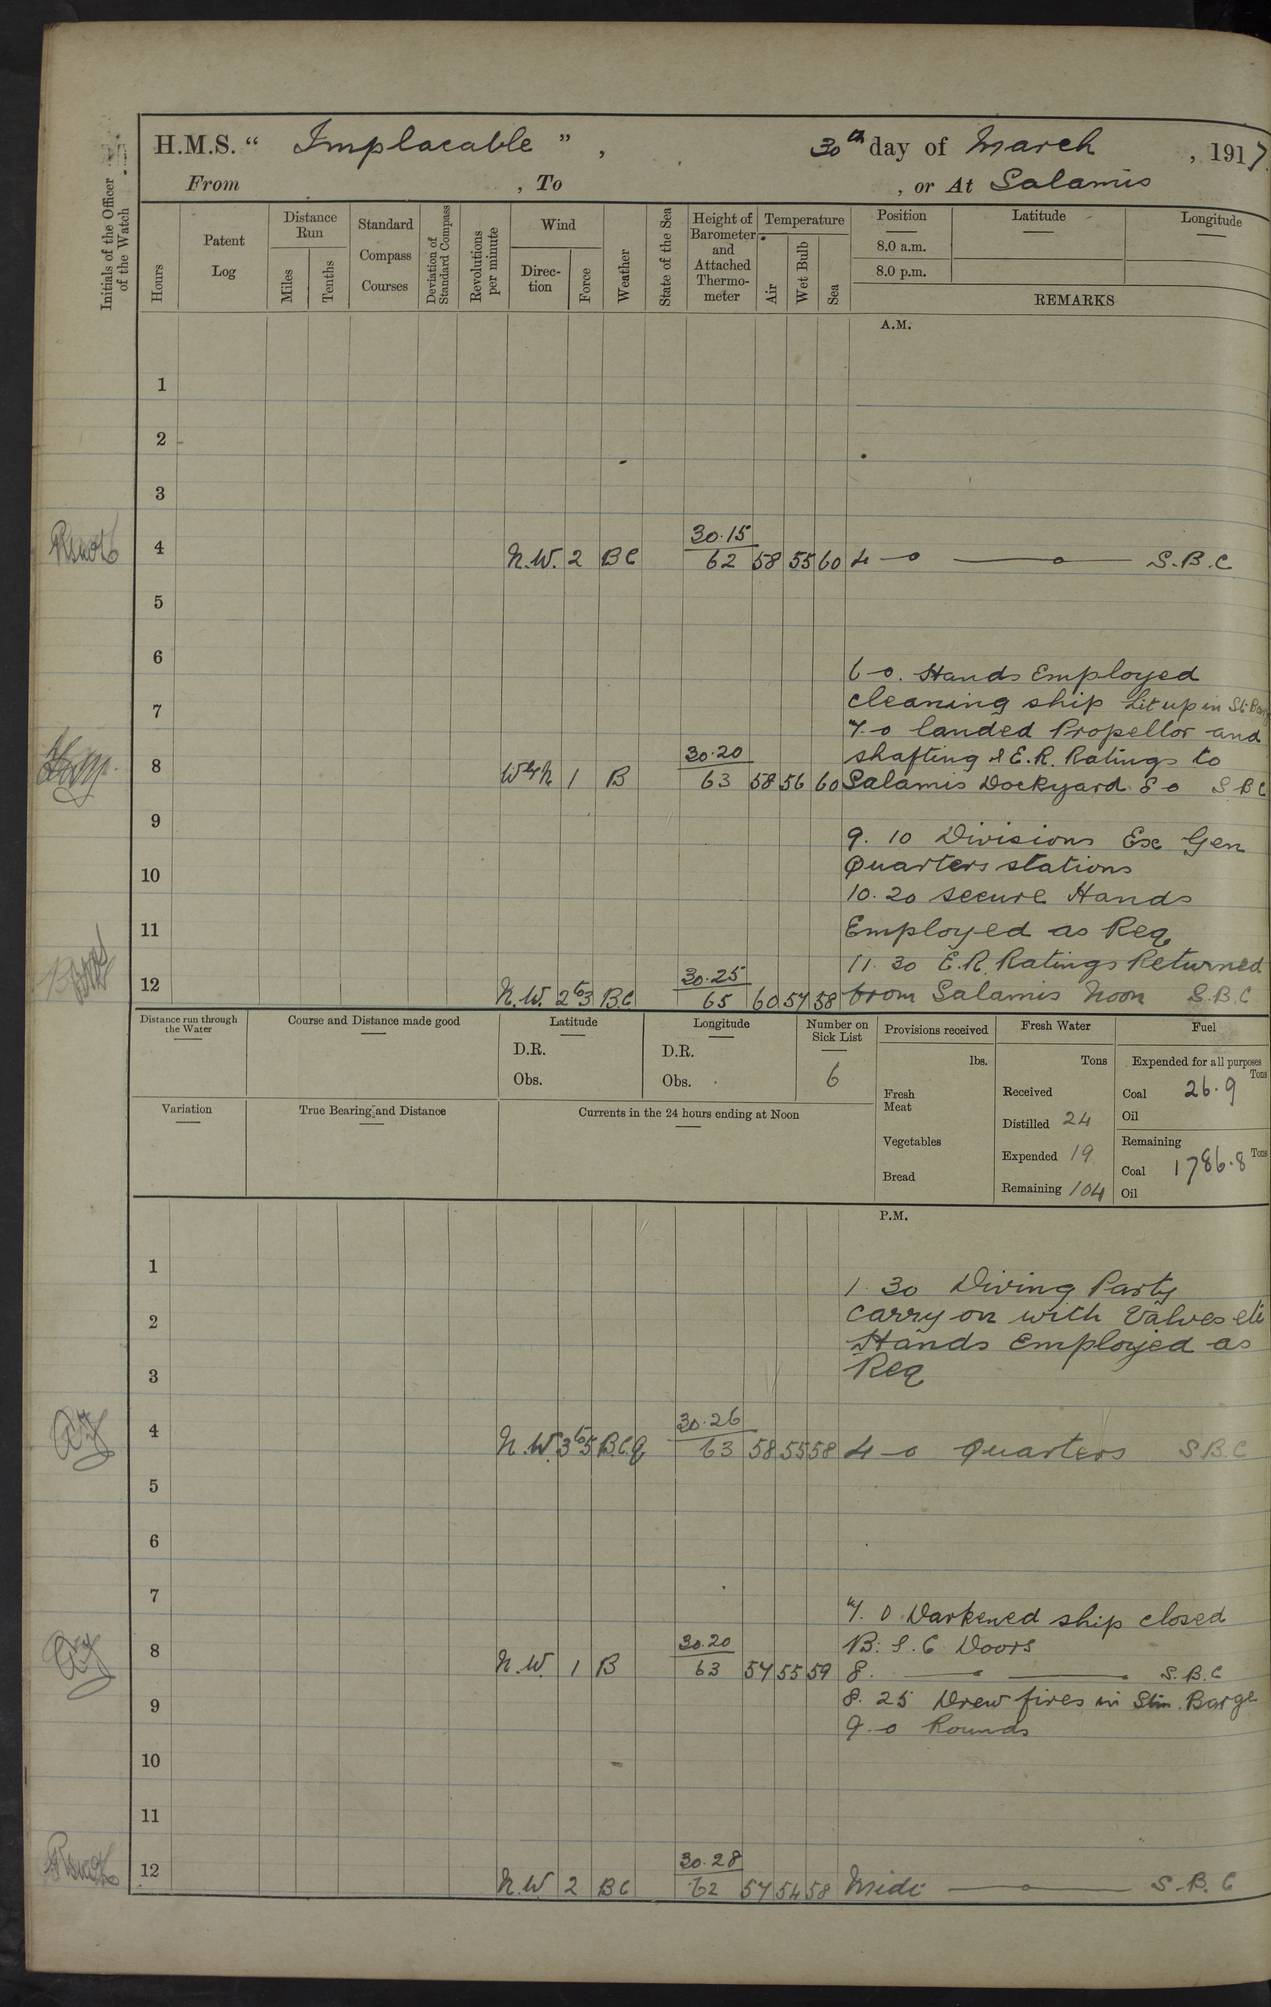 H.M.S. “ Implacable ” , 30th day of March , 1917
From , To , or At Salamis
Initials of the Officer of the Watch
Hours
Patent Log
Distance Run
Miles
Tenths
Standard Compass Courses
Deviation of Standard Compass
Revolutions per minute
Wind
Direc-tion
Force
Weather
State of the Sea
Height of Barometer and Attached Thermo-meter
Temperature
Air
Wet Bulb
Sea
Position
8.0 a.m.
8.0 p.m.
Latitude
Longitude
REMARKS
A.M.
1
2
3
30.15
4 N.W. 2 BC 62 58 55 60 4 - o S.B.C
5
6
6-0. Hands Employed
cleaning ship Lit up in St Barge
7
7-0 landed Propellor and
30.20 shafting & E.R. Ratings to
8 W by N 1 B 63 58 56 60 Salamis Dockyard 8 0 S B C
9
9. 10 Divisions Exc Gen
Quarters stations
10
10. 20 secure Hands
11
Employed as Req
11. 30 E.R. Ratings Returned
30.25
12 N.W. 2 to 3 B.C 65 60 57 58 from Salamis Noon S.B.C
Distance run through the Water
Course and Distance made good
Latitude
D.R.
Obs.
Longitude
D.R.
Obs.
Number on Sick List
6
Provisions received
lbs.
Fresh Meat
Vegetables
Bread
Fresh Water
Tons
Received
Distilled 24
Expended 19
Remaining 104
Fuel
Expended for all purposes
Tons
Coal 26.9
Oil
Remaining
Tons
Coal 1786.8
Oil
Variation
True Bearing and Distance
Currents in the 24 hours ending at Noon
P.M.
1
1. 30 Diving Party
2
carry on with Valves etc
Hands Employed as
3
Req
30.26
4 N.W. 3 to 5 B.C.Q 63 58 55 58 4-0 Quarters S.B.C
5
6
7
7. 0 Darkened ship closed
30.20 B. S. C Doors
8 N.W. 1 B 63 57 55 59 8. S.B.C
8. 25 Drew fires in Stm. Barge
9
9-0 Rounds
10
11
30.28
12 N.W 2 BC 62 57 54 58 Midt S.B.C